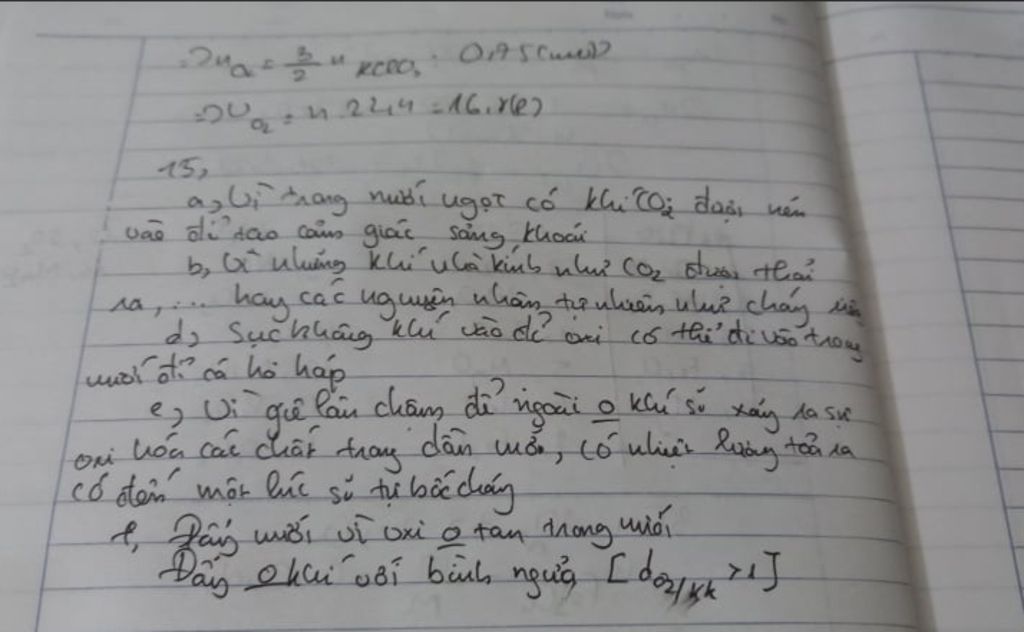 => n O2 = 3/2 n KClO3 = 0,75 (mol)
=> V O2 = n . 22,4 = 16,8 (l)
15,
a, Vì trong nước ngọt có khí CO2 được nén
vào để tạo cảm giác sảng khoái
b, Vì những khí nhà kính như CO2 được thải
ra, ... hay các nguyên nhân tự nhiên như cháy
d, Sục không khí vào để oxi có thể đi vào trong
nước để cá hô hấp
e, Vì giẻ lau chậm để ngoài o khí sẽ xảy ra sự
oxi hóa các chất trong dầu mỡ, có nhiệt lượng tỏa ra
có đến một lúc sẽ tự bốc cháy
f, Đẩy nước vì oxi o tan trong nước
Đẩy o khí với bình ngửa [dO2/kk >1]